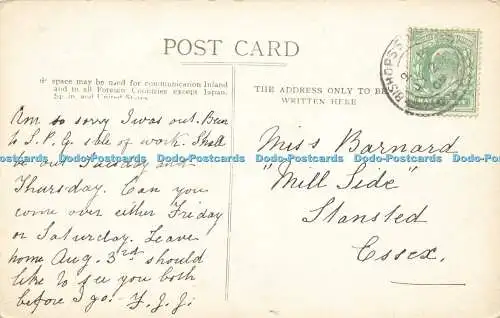 POST CARD
space may be used for communication Inland
and to all Foreign Countries except Japan,
Spain and United States
THE ADDRESS ONLY TO BE
WRITTEN HERE
BISHOP'S
Am so sorry I was out. Been
to S.P.G. sale of work. Shall
be out Tuesday and
Thursday. Can you
come over either Friday
or Saturday. Leave
home Aug. 3rd should
like to see you both
before I go. F.J.J.
Miss Barnard
"Mill Side"
Stansted
Essex.
www.Postcards-World.Delcampe.net